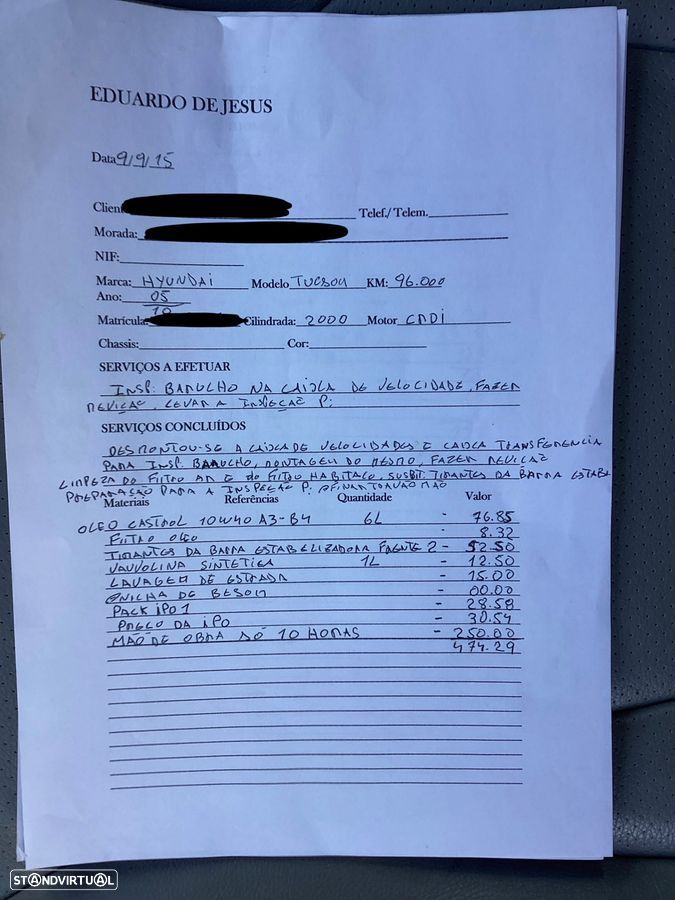 EDUARDO DE JESUS
Data 9/9/15
Client Telef./ Telem.
Morada:
NIF:
Marca: HYUNDAI Modelo TUCSON KM: 96.000
Ano: 05
10
Matrícula Cilindrada: 2000 Motor CRDI
Chassis: Cor:
SERVIÇOS A EFETUAR
INSP. BARULHO NA CAIXA DE VELOCIDADE, FAZER
REVIÇAE, LEVAR A INSPEÇAE P:
SERVIÇOS CONCLUÍDOS
DESMONTOU-SE A CAIXA DE VELOCIDADES E CAIXA TRANSFERENCIA
PARA INSP. BARULHO, MONTAGEM DO MESMO, FAZER REVIÇAE
LIMPEZA DO FILTRO AR E DO FILTRO HABITACO, SUSBT: TIRANTES DA BARRA ESTABE
PREPARAÇÃO PARA A INSPEÇAE P: AFINAR TRAVÃO MÃO
Materiais Referências Quantidade Valor
OLEO CASTROL 10W40 A3-B4 6L - 76.85
FILTRO OLEO - 8.32
TIRANTES DA BARRA ESTABELIZADORA FRENTE 2 - 52.50
VALVOLINA SINTETICA 1L - 12.50
LAVAGEM DE ESTRADA - 15.00
DE - 00.00
PACK IPO 1 - 28.58
PREÇO DA IPO - 30.54
MÃO DE OBRA SÓ 10 HORAS - 250.00
474.29
STANDVIRTUAL